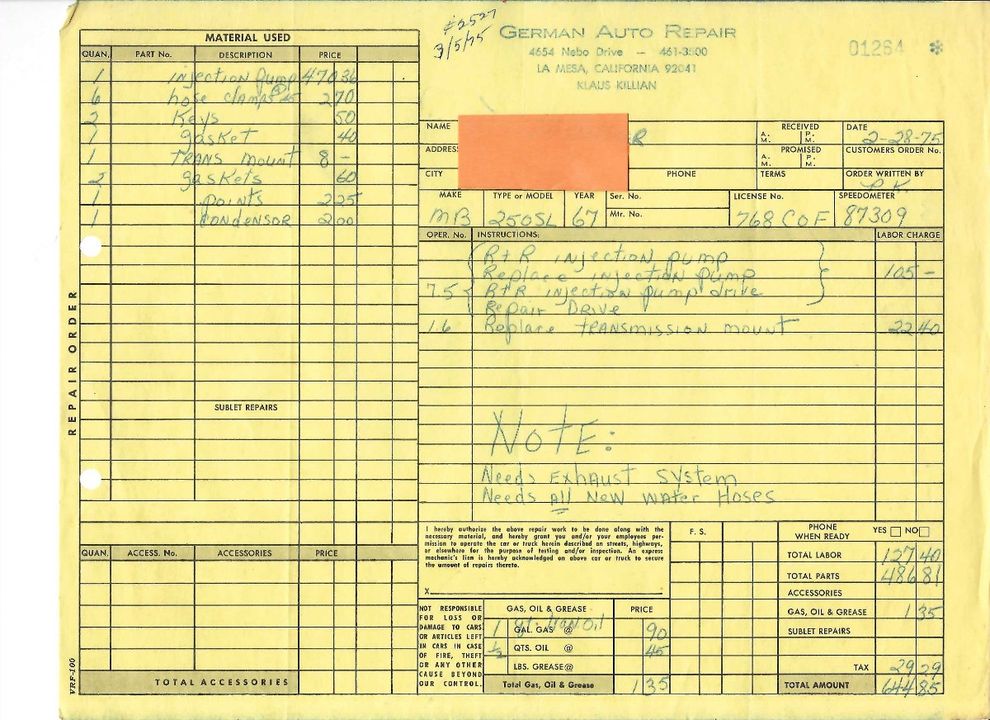 #2527
3/5/75
GERMAN AUTO REPAIR
4654 Nebo Drive — 461-3500
LA MESA, CALIFORNIA 92041
KLAUS KILLIAN
01264 *
REPAIR ORDER
VRF-100
MATERIAL USED
QUAN. PART No. DESCRIPTION PRICE
1 injection pump 470 36
6 hose clamps @ 45 2 70
2 Keys 50
1 gasket 40
1 TRANS mount 8 –
2 gaskets 60
1 points 2 25
1 CONDENSOR 2 00
SUBLET REPAIRS
QUAN. ACCESS. No. ACCESSORIES PRICE
TOTAL ACCESSORIES
NAME R
ADDRESS
CITY PHONE
RECEIVED A. M. P. M.
PROMISED A. M. P. M.
TERMS
DATE 2-28-75
CUSTOMERS ORDER No.
ORDER WRITTEN BY
MAKE TYPE or MODEL YEAR Ser. No. LICENSE No. SPEEDOMETER
Mtr. No.
MB 250SL 67 768 COF 87309
OPER. No. INSTRUCTIONS: LABOR CHARGE
R+R injection pump
Replace injection pump 105 –
7.5 R+R injection pump drive
Repair DRive
1.6 Replace TRANSMISSION mount 22 40
NOTE:
Needs EXHAUST SYSTEM
Needs All New Water Hoses
I hereby authorize the above repair work to be done along with the
necessary material, and hereby grant you and/or your employees per-
mission to operate the car or truck herein described on streets, highways,
or elsewhere for the purpose of testing and/or inspection. An express
mechanic's lien is hereby acknowledged on above car or truck to secure
the amount of repairs thereto.
X
NOT RESPONSIBLE
FOR LOSS OR
DAMAGE TO CARS
OR ARTICLES LEFT
IN CARS IN CASE
OF FIRE, THEFT
OR ANY OTHER
CAUSE BEYOND
OUR CONTROL.
GAS, OIL & GREASE PRICE
1 GAL. GAS @ 90
1/2 QTS. OIL @ 45
LBS. GREASE @
Total Gas, Oil & Grease 1 35
F. S.
PHONE WHEN READY YES NO
TOTAL LABOR 127 40
TOTAL PARTS 486 81
ACCESSORIES
GAS, OIL & GREASE 1 35
SUBLET REPAIRS
TAX 29 29
TOTAL AMOUNT 644 85